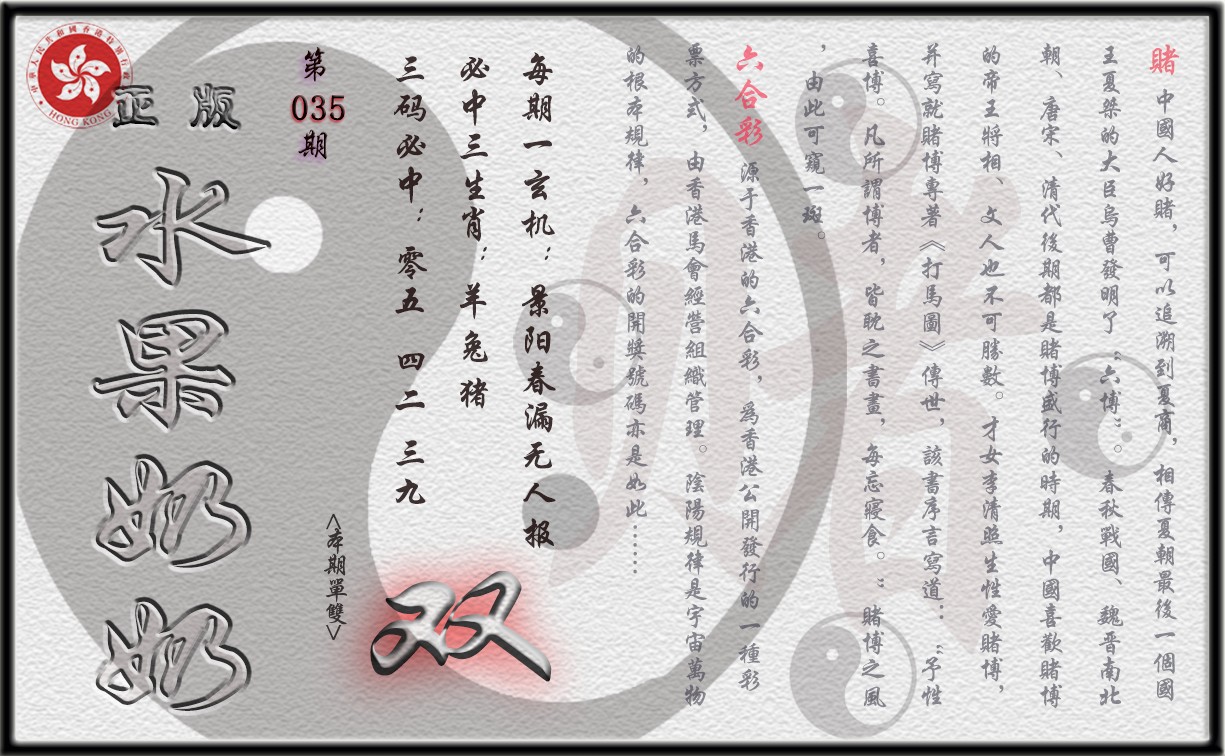 賭 中國人好賭，可以追溯到夏商，相傳夏朝最後一個國
王夏桀的大臣烏曹發明了“六博”。春秋戰國、魏晋南北
朝、唐宋、清代後期都是賭博盛行的時期，中國喜歡賭博
的帝王將相、文人也不可勝數。才女李清照生性愛賭博，
并寫就賭博專著《打馬圖》傳世，該書序言寫道：“予性
喜博。凡所謂博者，皆耽之書畫，每忘寢食。”賭博之風
，由此可窺一斑。
六合彩 源于香港的六合彩，爲香港公開發行的一種彩
票方式，由香港馬會經營組織管理。陰陽規律是宇宙萬物
的根本規律，六合彩的開獎號碼亦是如此……
每期一玄机：景阳春漏无人报
必中三生肖：羊兔猪
三码必中：零五 四二 三九
双
<本期單雙>
第
035
期
正版
水果奶奶
中華人民共和國香港特別行政區
HONG KONG